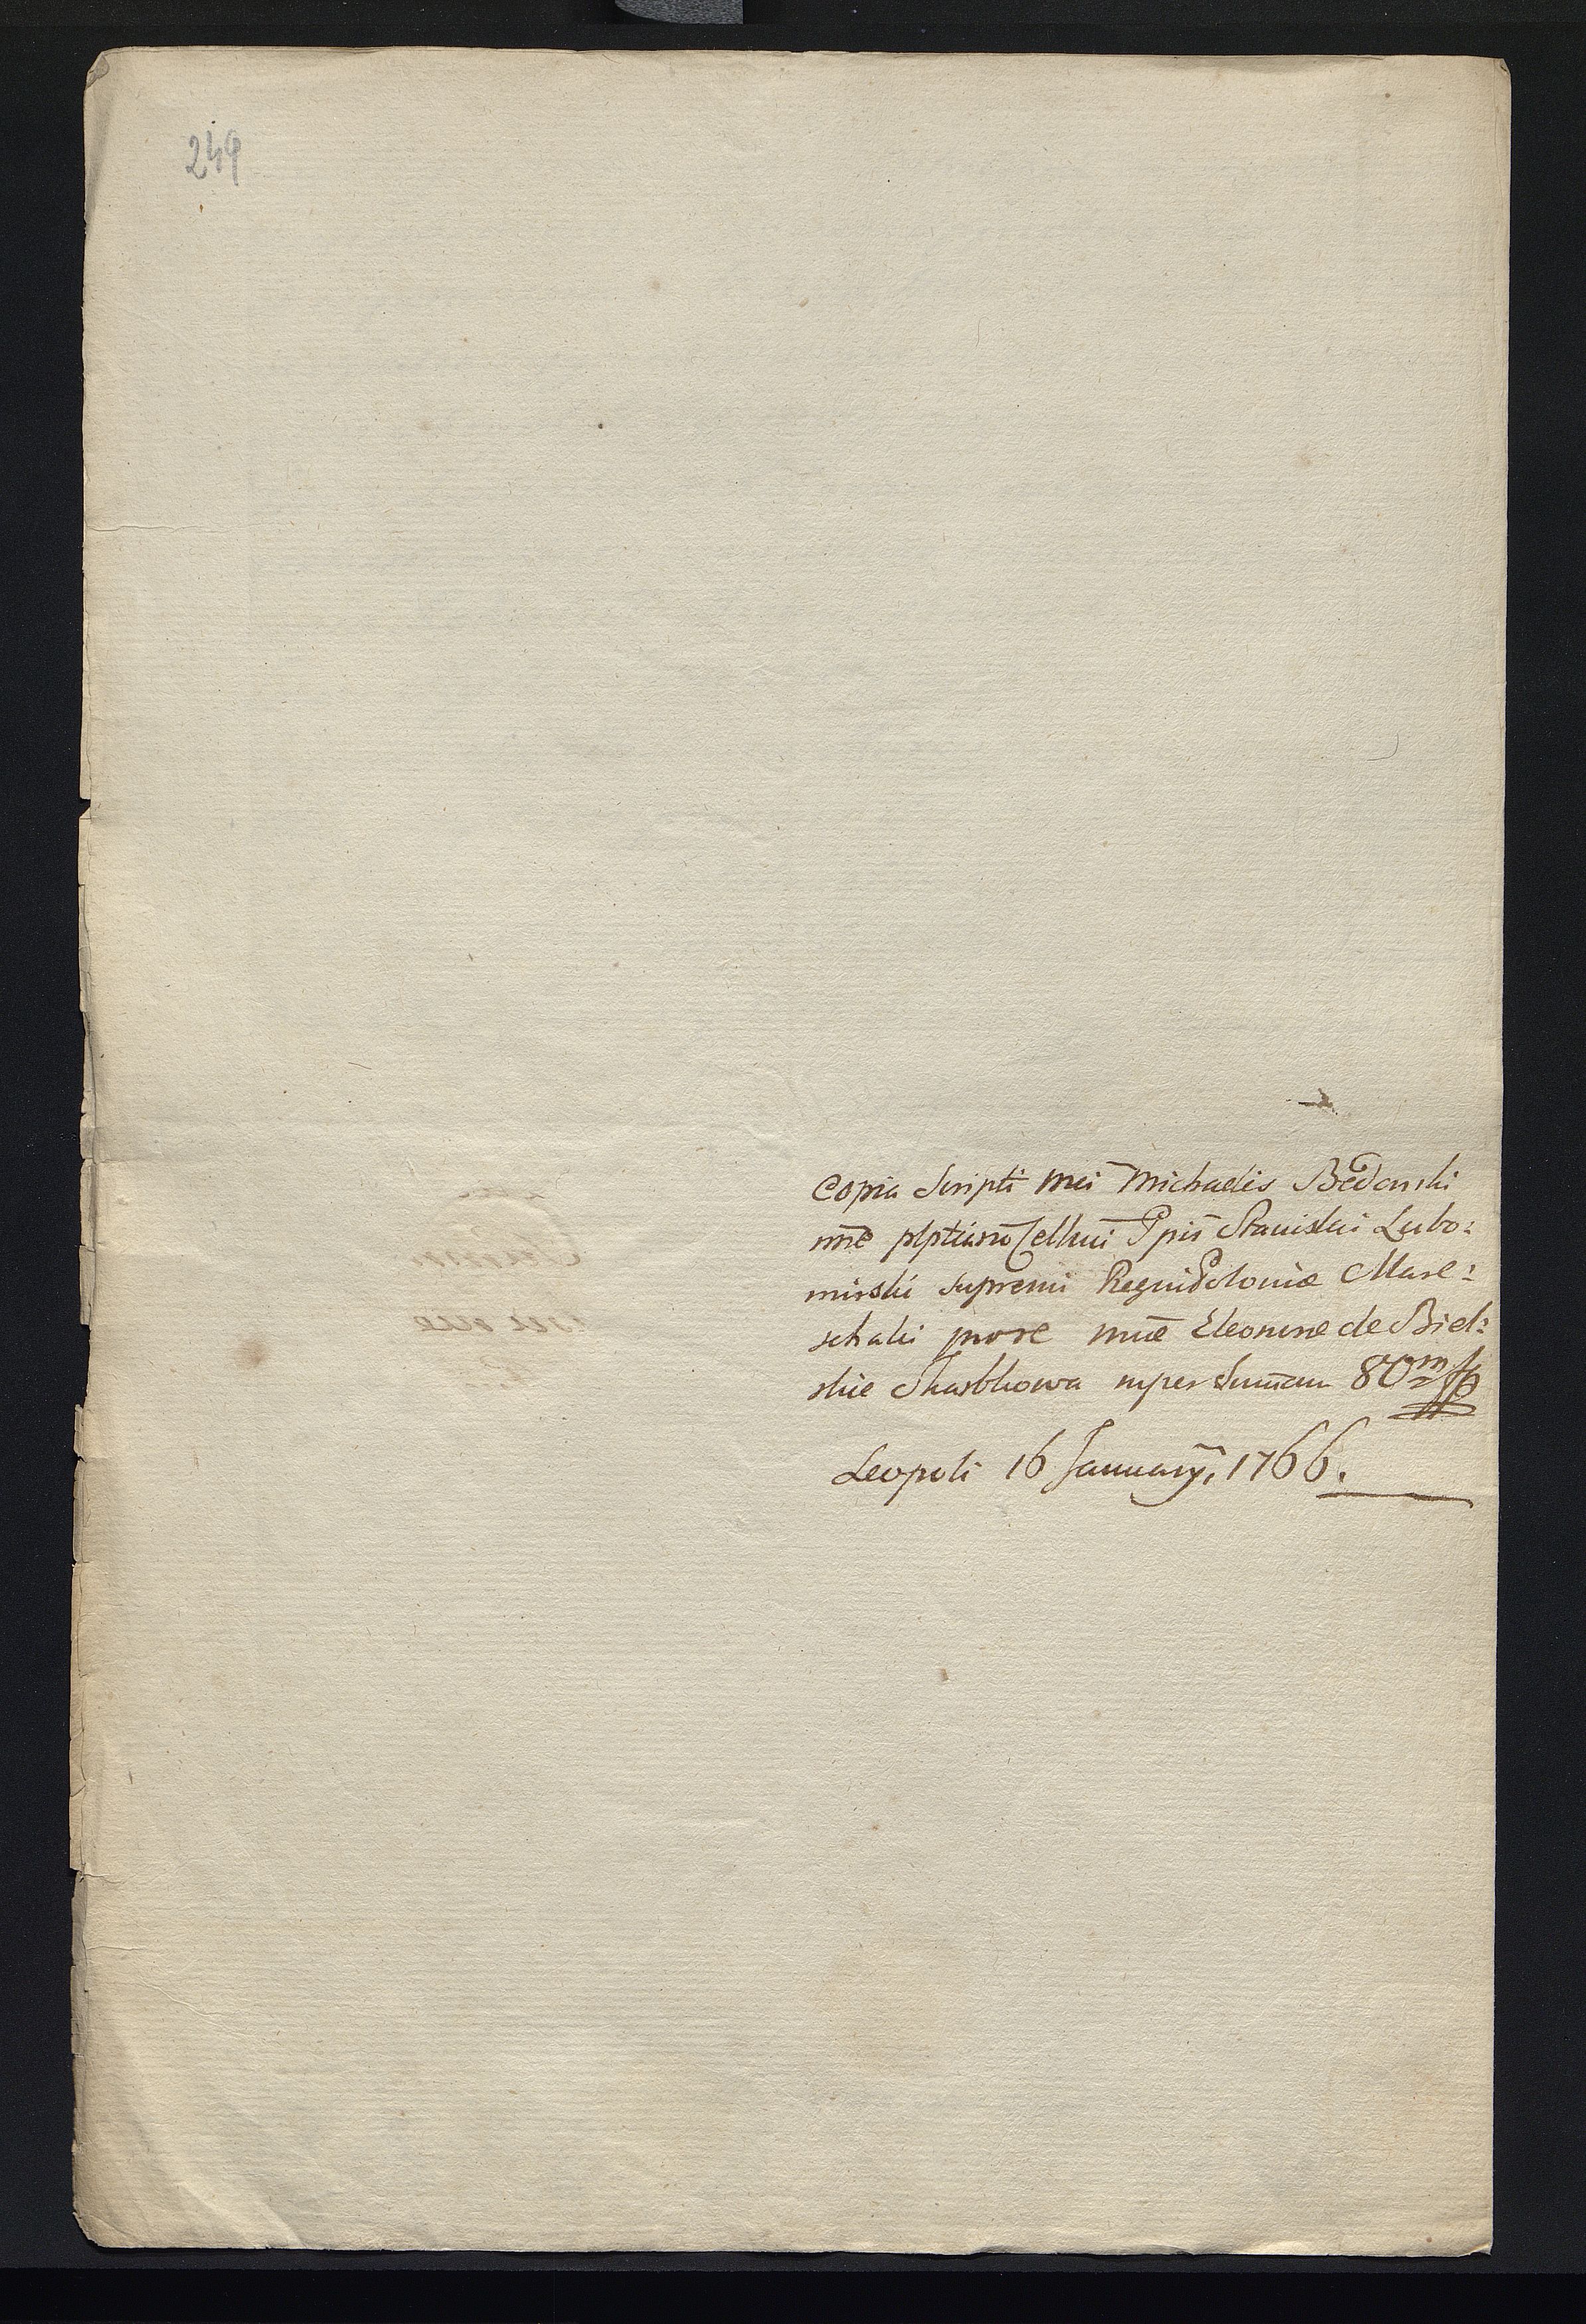 249
Copia Scripti Mci Michaelis Bedonski
nne plptiario Cellmi Ppis Stanislai Lubo:
mirski Supremi Regni Poloniæ Mare:
schalci prose Mncæ Eleonoræ de Biel:
skie Skarbkowa super Summam 80m fp
Leopoli 16 January, 1766.